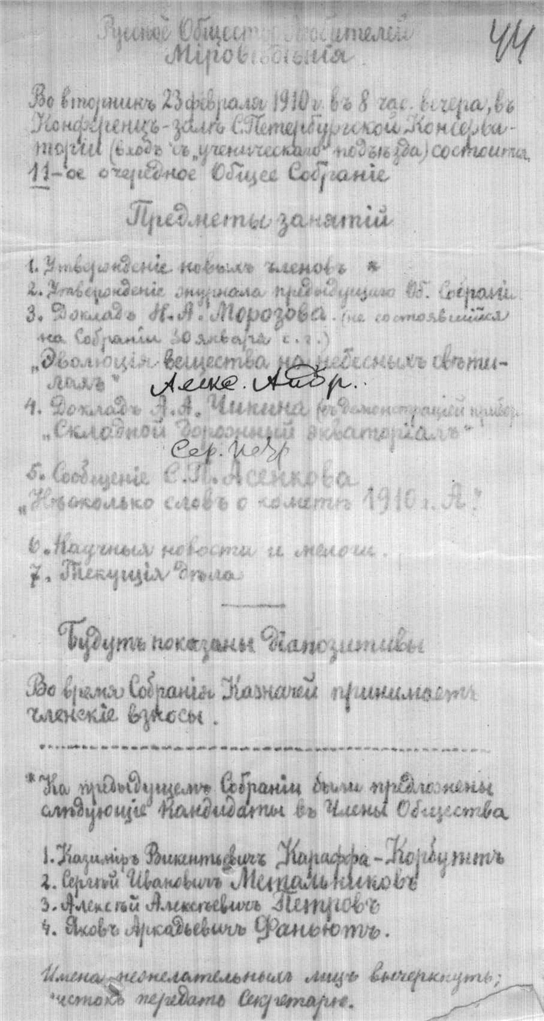 Русское Общество Любителей
Міровѣдѣнія.
44
Во вторникъ 23 февраля 1910 г. въ 8 час. вечера, въ
Конференцъ-залѣ С.Петербургской Консерва-
торіи (входъ съ „ученическаго" подъѣзда) состоится
11-ое очередное Общее Собраніе
Предметы занятій
1. Утвержденіе новыхъ членовъ *
2. Утвержденіе журнала предыдущаго Об. Собранія
3. Докладъ Н. А. Морозова. (не состоявшійся
на Собраніи 30 января с. г.)
„Эволюція вещества на небесныхъ свѣти-
лахъ"
Алекс. Андр..
4. Докладъ А.А. Чикина (съ демонстраціей прибор.
„Складной дорожный экваторіалъ"
Сер. Петр
5. Сообщеніе С.П. Асенкова
„Нѣсколько словъ о кометѣ 1910 г. А."
6. Научныя новости и мелочи.
7. Текущія дѣла
Будутъ показаны діапозитивы
Во время Собранія Казначей принимаетъ
членскіе взносы.
* На предыдущемъ Собраніи были предложены
слѣдующіе кандидаты въ Члены Общества
1. Казиміръ Викентьевичъ Караффа-Корбуттъ
2. Сергѣй Ивановичъ Метальниковъ
3. Алексѣй Алексѣевичъ Петровъ
4. Яковъ Аркадьевичъ Фаньютъ.
Имена нежелательныхъ лицъ вычеркнуть;
листокъ передать Секретарю.